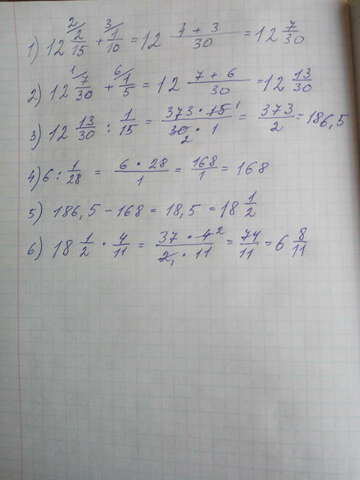 1) 12 2/15 (2/ + 1/10 (3/ = 12 (4 + 3)/30 = 12 7/30
2) 12 7/30 (1/ + 1/5 (6/ = 12 (7 + 6)/30 = 12 13/30
3) 12 13/30 : 1/15 = (373 · 15 1)/(30 2 · 1) = 373/2 = 186,5
4) 6 : 1/28 = (6 · 28)/1 = 168/1 = 168
5) 186,5 - 168 = 18,5 = 18 1/2
6) 18 1/2 · 4/11 = (37 · 4 2)/(2 1 · 11) = 74/11 = 6 8/11